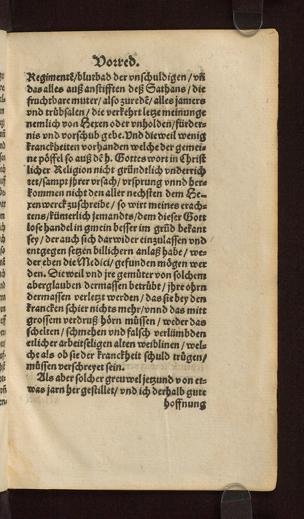 Vorred.
Regiments/blutbad der vnschuldigen/ vñ
das alles auß anstifften deß Sathans/ die
fruchtbare muter/ also zuredē/ alles jamers
vnd trübsalen/ die verkehrt letze meinunge
nemlich von Hexen oder vnholden/ fürder-
nis vnd vorschub gebe. Vnd dieweil wenig
kranckheiten vorhanden welche der gemei-
ne pöffel so auß dē h. Gottes wort in Christ
licher Religion nicht gründtlich vnderrich
tet/ sampt jhrer vrsach/ vrsprung vnnd her-
kommen nicht den aller nechsten dem He-
xenwerck zuschreibe/ so wirt meines erach-
tens/ kümerlich jemandts/ dem dieser Gott
lose handel in gmein besser im grūd bekant
sey/ der auch sich darwider einzulassen vnd
entgegen setzen billichern anlaß habe/ we-
der eben die Medici/ gefunden mögen wer
den. Sieweil vnd jre gemüter von solchem
aberglauben dermassen betrübt/ jhre ohrn
dermassen verletzt werden/ das sie bey den
krancken schier nichts mehr/ vnnd das mitt
grossem verdruß hörn müssen/ weder das
schelten/ schmehen vnd falsch verlümbden
etlicher arbeitseligen alten weiblinen/ wel-
che als ob sie der kranckheit schuld trügen/
müssen verschreyet sein.
Als aber solcher greuwel jetzund von et-
was jarn her gestillet/ vnd ich derhalb gute
hoffnung